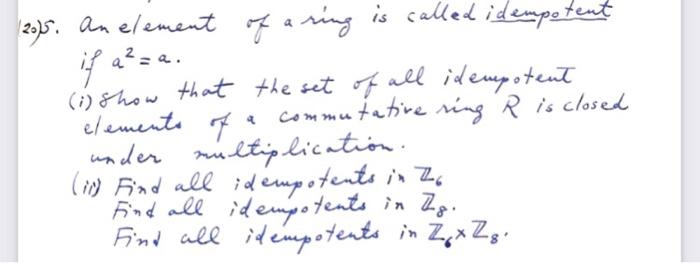 (20)5. An element of a ring is called idempotent
if a² = a.
(i) Show that the set of all idempotent
elements of a commutative ring R is closed
under multiplication.
(ii) Find all idempotents in ℤ₆
Find all idempotents in ℤ₈.
Find all idempotents in ℤ₆×ℤ₈.